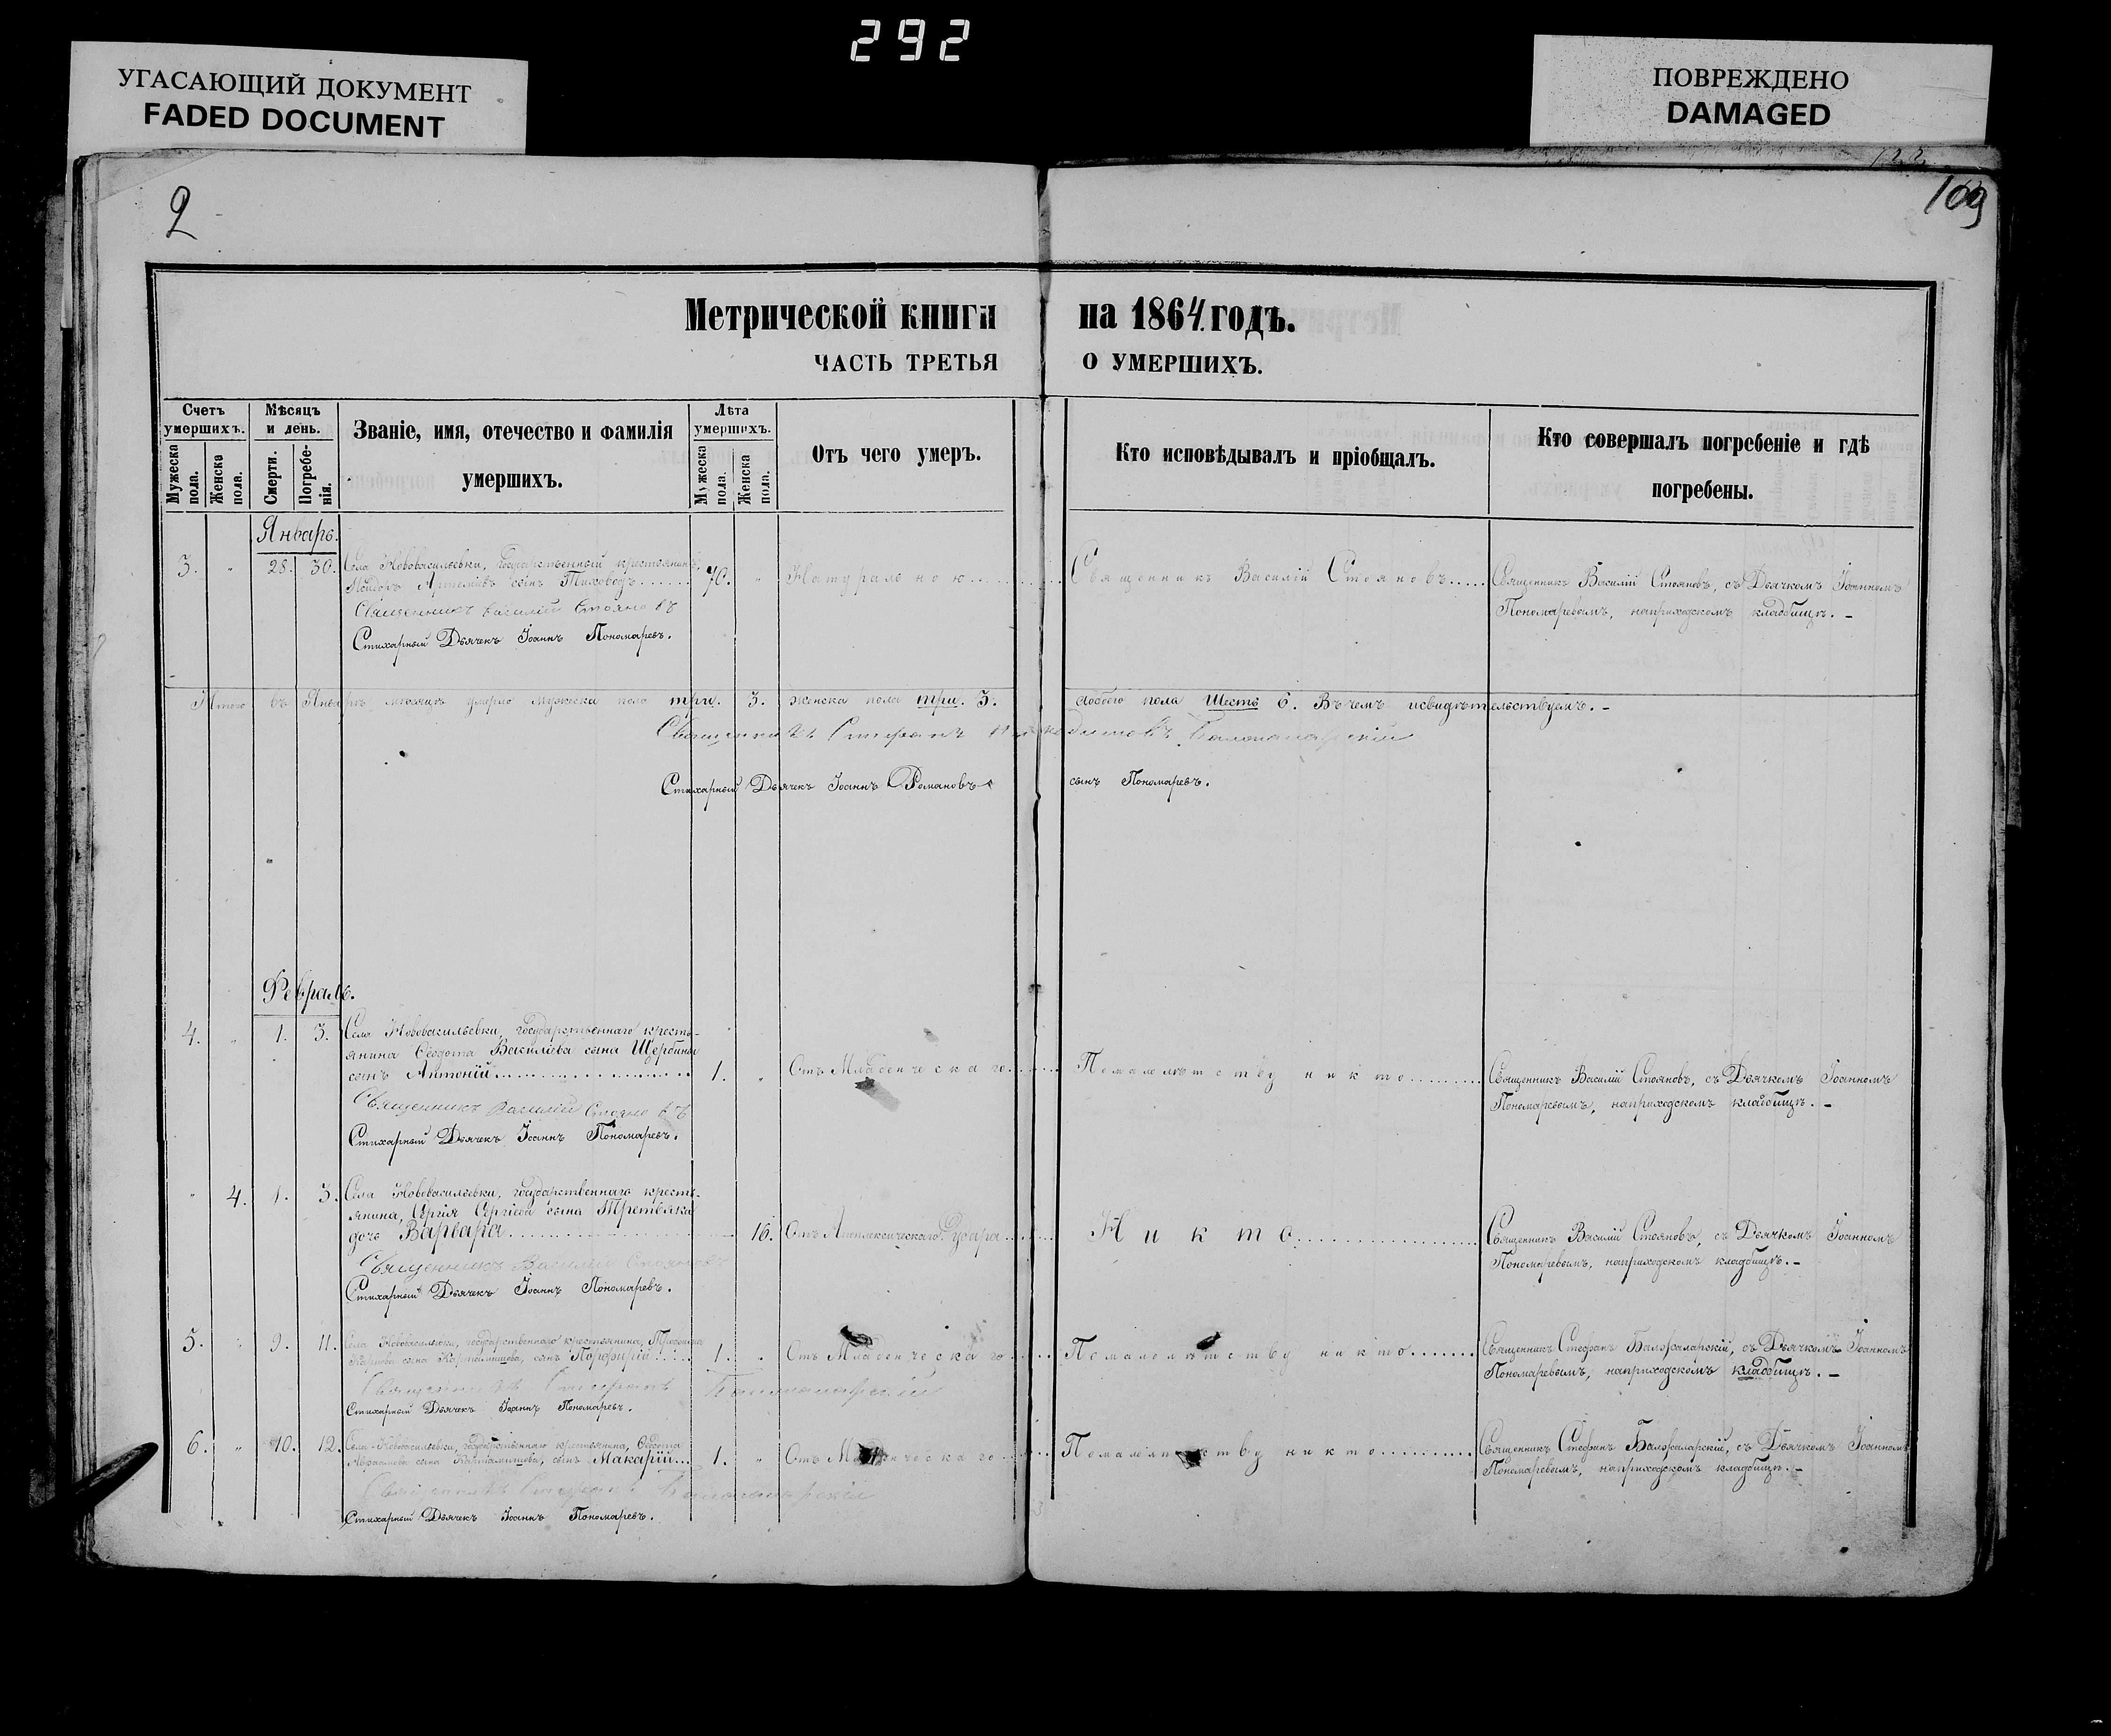 292
УГАСАЮЩИЙ ДОКУМЕНТ
FADED DOCUMENT
ПОВРЕЖДЕНО
DAMAGED
2
Метрической книги на 1864 годъ.
ЧАСТЬ ТРЕТЬЯ О УМЕРШИХЪ.
Счетъ умершихъ.
Мужеска пола.
Женска пола.
Мѣсяцъ и день.
Смерти.
Погребенія.
Званіе, имя, отечество и фамилія умершихъ.
Лѣта умершихъ.
Мужеска пола.
Женска пола.
Отъ чего умеръ.
Кто исповѣдывалъ и пріобщалъ.
Кто совершалъ погребеніе и гдѣ погребены.
Январь.
3. " 28. 30. Села Нововасильевки, Государственный крестьянинъ, 70. " Натуральною Священникъ Василій Стояновъ Священникъ Василій Стояновъ, съ Дьячкомъ Іоанномъ
сынъ Тиховодъ Пономаревымъ, наприходскомъ кладбищѣ.-
Священникъ Василій Стояновъ
Стихарный Дьячекъ Іоаннъ Пономаревъ.
Итого въ Январѣ мѣсяцѣ умерло мужеска пола три. 3. женска пола три. 3. обоего пола шесть 6. Въ чемъ исвидѣтельствуемъ.-
Священникъ Стефанъ
Стихарный Дьячекъ Іоаннъ Романовъ сынъ Пономаревъ.
Февраль.
4. " 1. 3. Села Нововасильевки, государственнаго кресть-
янина Ѳеодота Василіева сына Щербины
сынъ Антоній 1. " Отъ Младенческаго Помалолѣтству никто Священникъ Василій Стояновъ, съ Дьячкомъ Іоанномъ
Священникъ Василій Стояновъ Пономаревымъ, наприходскомъ кладбищѣ.-
Стихарный Дьячекъ Іоаннъ Пономаревъ.
" 4. 1. 3. Села Нововасильевки, государственнаго кресть-
янина, Сергія Сергіева сына Третьяка
дочь Варвара 16. Отъ Апоплексическаго Удара Никто Священникъ Василій Стояновъ, съ Дьячкомъ Іоанномъ
Священникъ Василій Стояновъ Пономаревымъ, наприходскомъ кладбищѣ.-
Стихарный Дьячекъ Іоаннъ Пономаревъ.
5. " 9. 11. Села Нововасильевки, государственнаго крестьянина,
сына сынъ Порфирій 1. " Отъ Младенческаго Помалолѣтству никто Священникъ Стефанъ съ Дьячкомъ Іоанномъ
Священникъ Стефанъ Пономаревымъ, наприходскомъ кладбищѣ.-
Стихарный Дьячекъ Іоаннъ Пономаревъ.
6. " 10. 12. Села Нововасильевки, государственнаго крестьянина, Ѳеодота
сына сынъ Макарій 1. " Отъ Младенческаго Помалолѣтству никто Священникъ Стефанъ съ Дьячкомъ Іоанномъ
Священникъ Стефанъ Пономаревымъ, наприходскомъ кладбищѣ.-
Стихарный Дьячекъ Іоаннъ Пономаревъ.